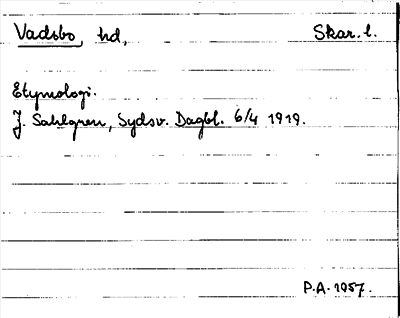 Vadsbo, hd, Skar. l.
Etymologi.
J. Sahlgren, Sydsv. Dagbl. 6/4 1919.
P.A. 1957.